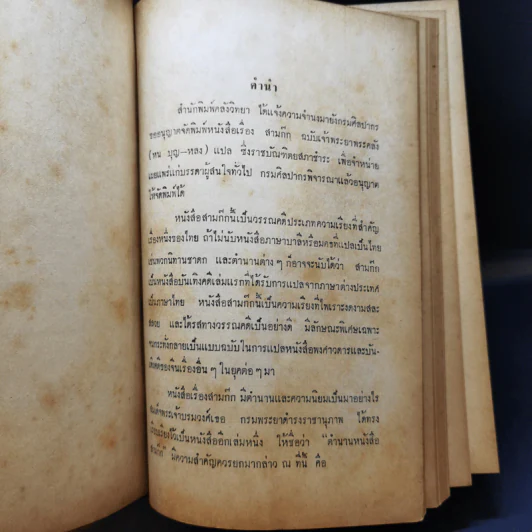 คำนำ
สำนักพิมพ์คลังวิทยา ได้แจ้งความจำนงมายังกรมศิลปากร
ขออนุญาตจัดพิมพ์หนังสือเรื่อง สามก๊ก ฉบับเจ้าพระยาพระคลัง
(หน บุญ—หลง) แปล ซึ่งราชบัณฑิตยสภาชำระ เพื่อจำหน่าย
เผยแพร่แก่บรรดาผู้สนใจทั่วไป กรมศิลปากรพิจารณาแล้วอนุญาต
ให้จัดพิมพ์ได้
หนังสือสามก๊กนี้เป็นวรรณคดีประเภทความเรียงที่สำคัญ
เรื่องหนึ่งของไทย ถ้าไม่นับหนังสือภาษาบาลีหรือมคธที่แปลเป็นไทย
เช่นพวกนิทานชาดก และตำนานต่าง ๆ ก็อาจจะนับได้ว่า สามก๊ก
เป็นหนังสือบันเทิงคดีเล่มแรกที่ได้รับการแปลจากภาษาต่างประเทศ
เป็นภาษาไทย หนังสือสามก๊กนี้เป็นความเรียงที่ไพเราะงดงามสละ
สลวย และได้รสทางวรรณคดีเป็นอย่างดี มีลักษณะพิเศษเฉพาะ
จนกระทั่งกลายเป็นแบบฉบับในการแปลหนังสือพงศาวดารและบัน-
เทิงคดีของจีนเรื่องอื่น ๆ ในยุคต่อ ๆ มา
หนังสือเรื่องสามก๊ก มีตำนานและความนิยมเป็นมาอย่างไร
สมเด็จพระเจ้าบรมวงศ์เธอ กรมพระยาดำรงราชานุภาพ ได้ทรง
เรียบเรียงไว้เป็นหนังสืออีกเล่มหนึ่ง ให้ชื่อว่า "ตำนานหนังสือ
สามก๊ก" มีความสำคัญควรยกมากล่าว ณ ที่นี้ คือ